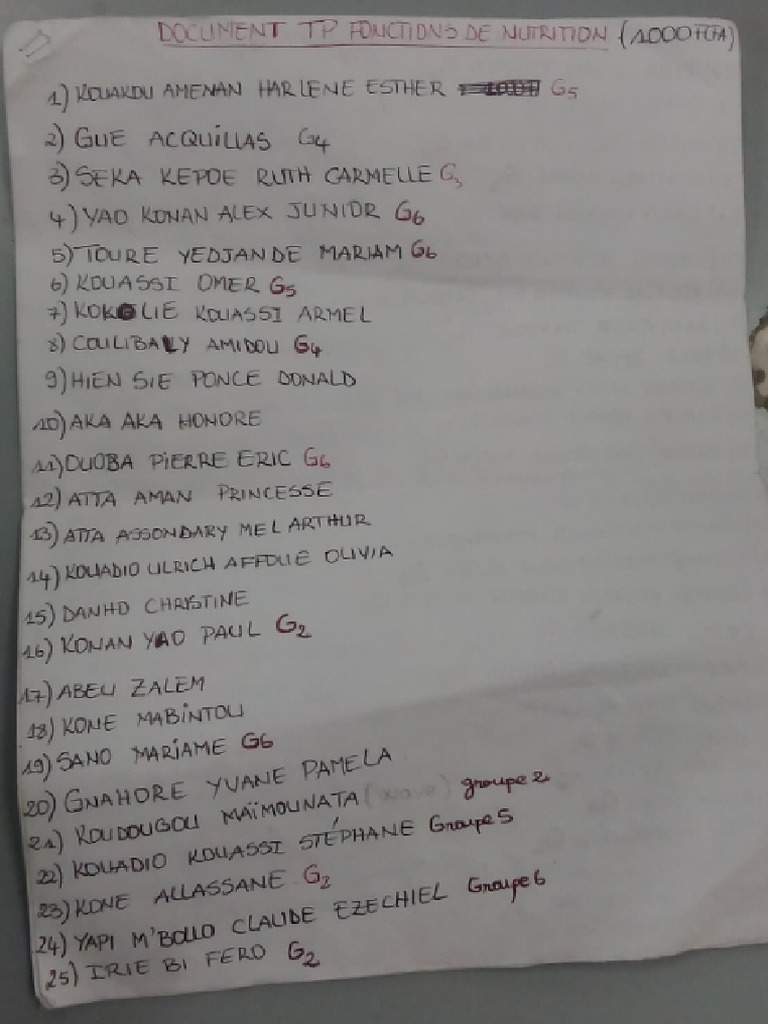 DOCUMENT TP FONCTIONS DE NUTRITION (1000 FCFA)
1) KOUAKOU AMENAN HARLENE ESTHER G5
2) GUE ACQUILLAS G4
3) SEKA KEPOE RUTH CARMELLE G3
4) YAO KONAN ALEX JUNIOR G6
5) TOURE YEDJANDE MARIAM G6
6) KOUASSI OMER G5
7) KOKOLIE KOUASSI ARMEL
8) COULIBALY AMIDOU G4
9) HIEN SIE PONCE DONALD
10) AKA AKA HONORE
11) OUOBA PIERRE ERIC G6
12) ATTA AMAN PRINCESSE
13) ATTA ASSONDARY MEL ARTHUR
14) KOUADIO ULRICH AFFOUE OLIVIA
15) DANHO CHRISTINE
16) KONAN YAO PAUL G2
17) ABEU ZALEM
18) KONE MABINTOU
19) SANO MARIAME G6
20) GNAHORE YVANE PAMELA
21) KOUDOUGOU MAÏMOUNATA groupe 2
22) KOUADIO KOUASSI STÉPHANE Groupe 5
23) KONE ALLASSANE G2
24) YAPI M'BOLLO CLAUDE EZECHIEL Groupe 6
25) IRIE BI FERO G2